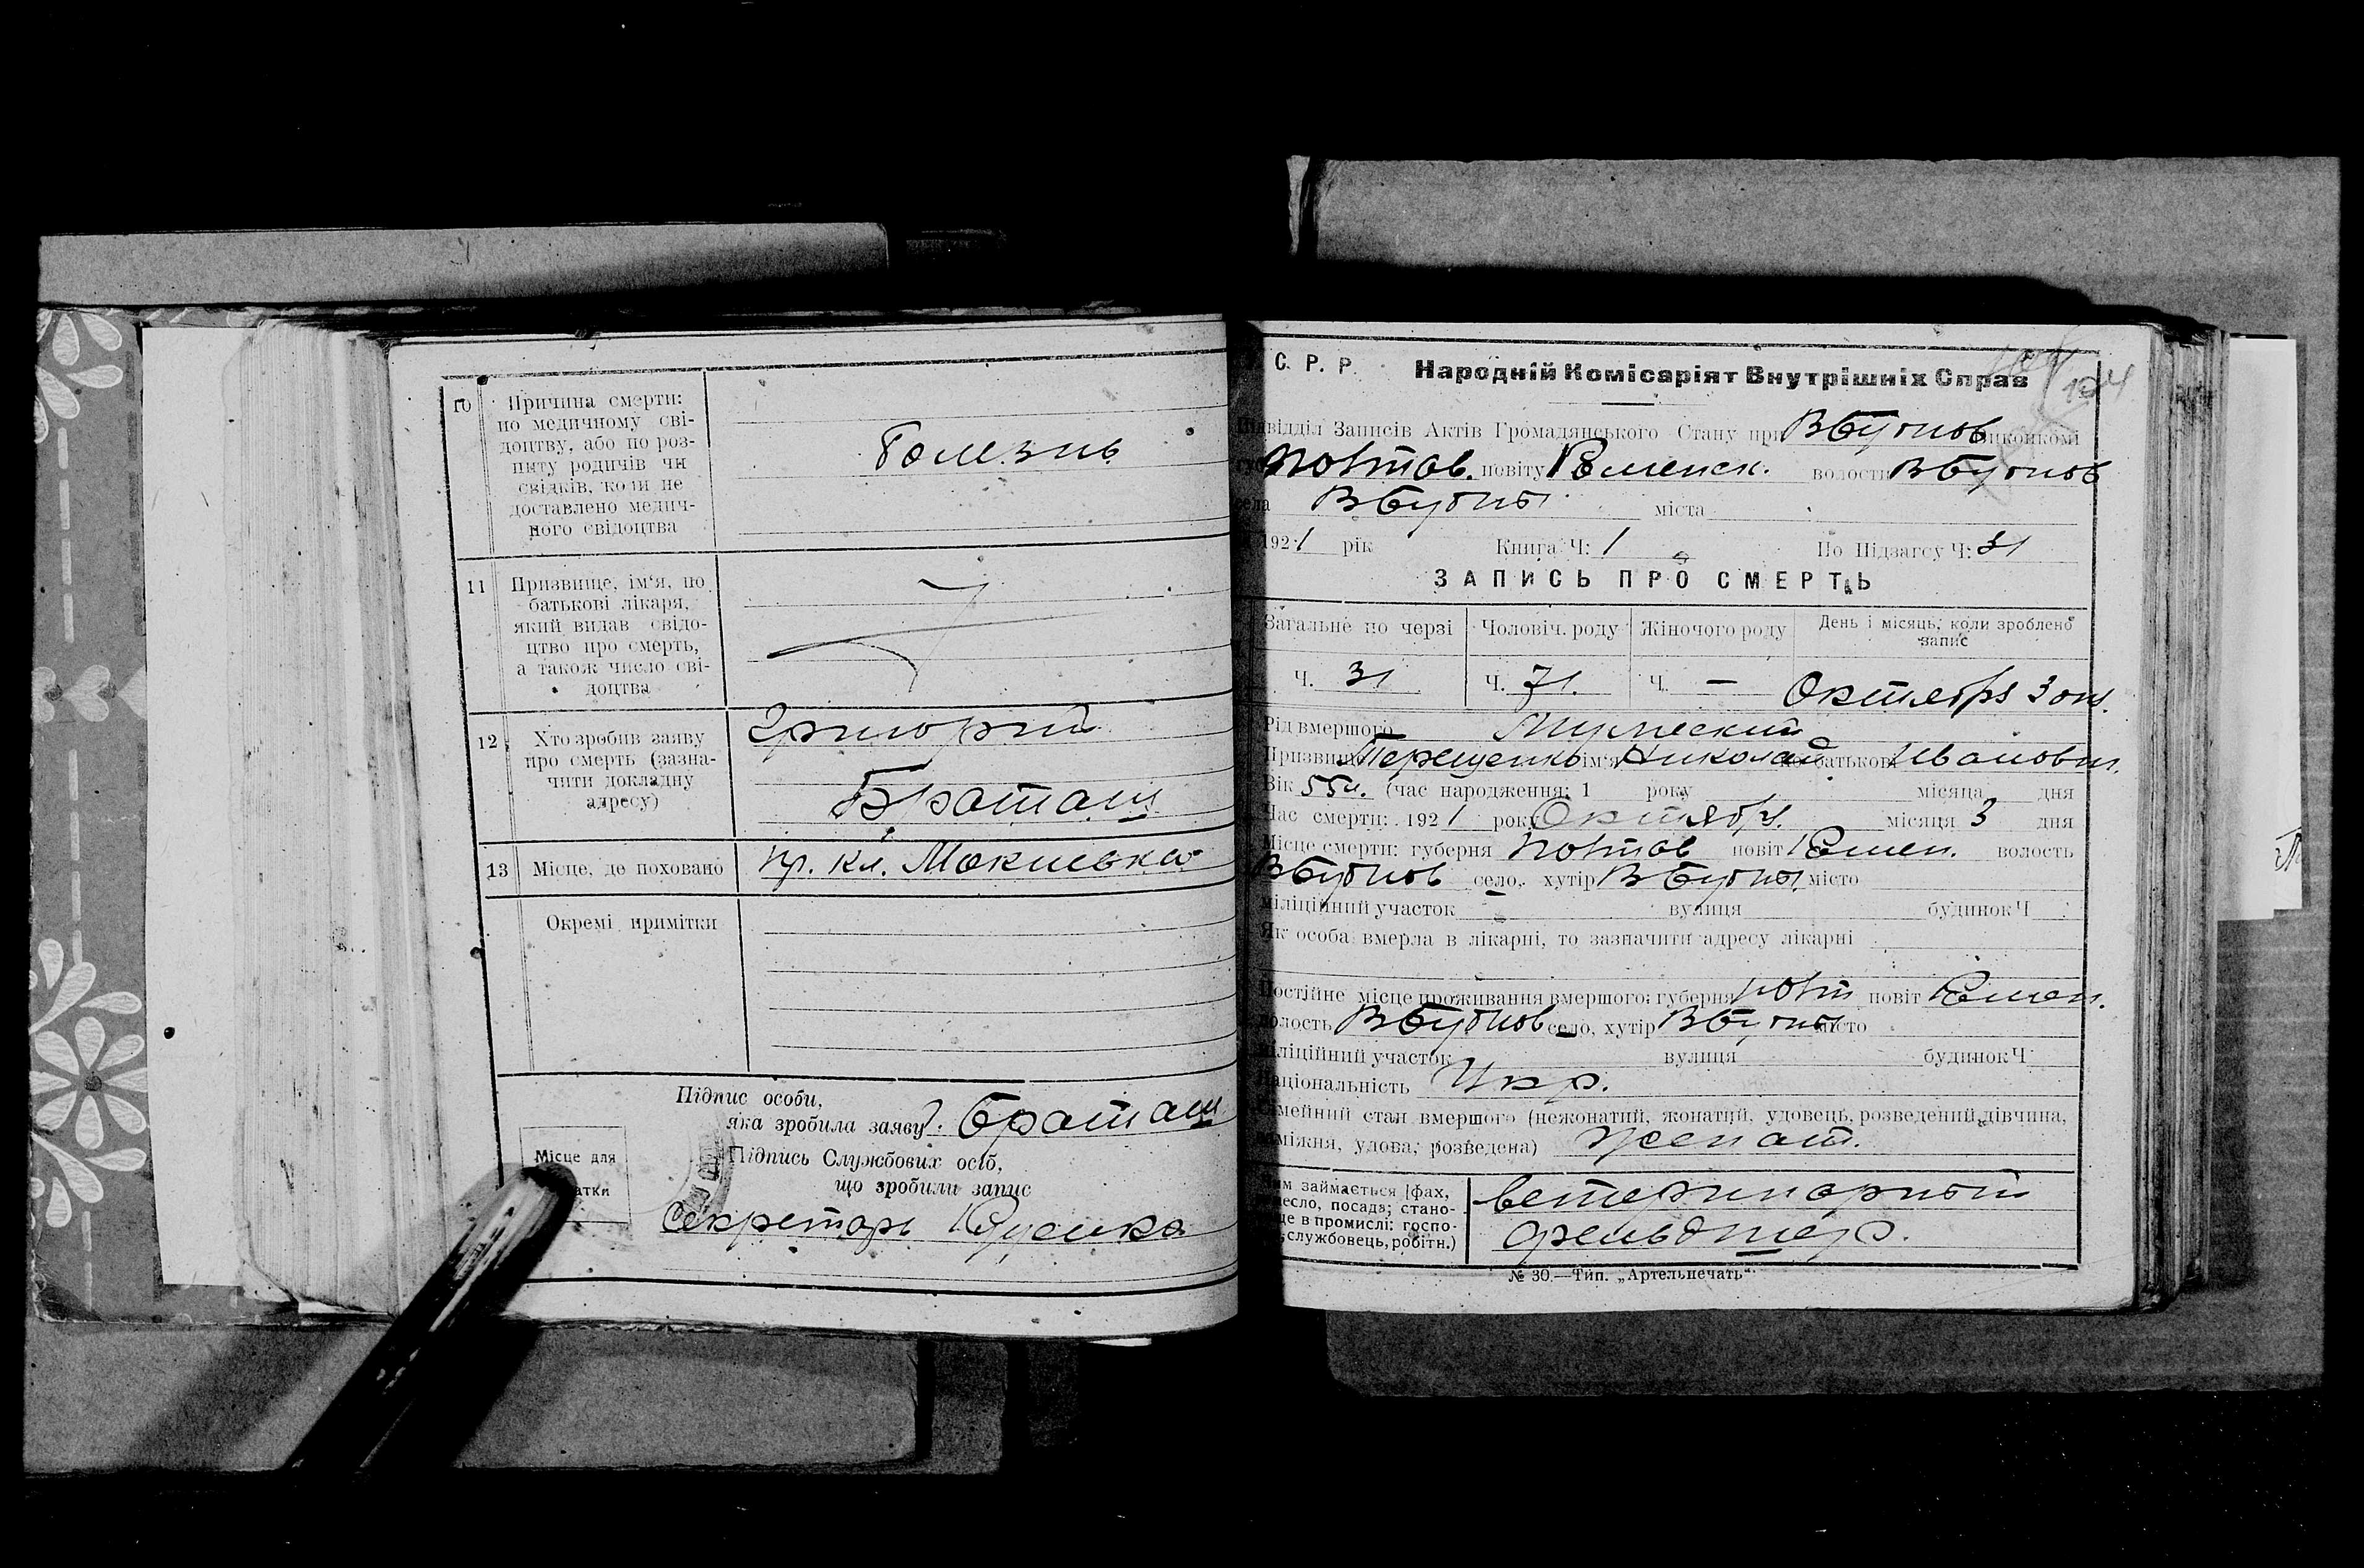 10 Причина смерти:
по медичному сві-
доцтву, або по роз-
питу родичів чи
свідків, коли не
доставлено медич-
ного свідоцтва
болезнь
11 Призвище, ім'я, по
батькові лікаря,
який видав свідо-
цтво про смерть,
а також число сві-
доцтва
12 Хто зробив заяву
про смерть (зазна-
чити докладну
адресу)
Григорий
Браташ
13 Місце, де поховано пр. кл.
Окремі примітки
Підпис особи,
яка зробила заяву Браташ
Місце для
Підпись Службових осіб,
що зробили запис
Секретарь
С. Р. Р. Народній Комісаріят Внутрішніх Справ
104
Підвідділ Записів Актів Громадянського Стану при виконкомі
Полтав. повіту Роменск. волости
села міста
1921 рік Книга Ч: 1 По Підзагсу Ч: 31
ЗАПИСЬ ПРО СМЕРТЬ
Загальне по черзі Чоловіч. роду Жіночого роду День і місяць, коли зроблено
запис
Ч. 31 Ч. Ч. — Октября 3
Рід вмершого Мужеский
Призвище Терещенко ім'я Николай по батькові Иванович.
Вік 55 л. (час народження: 1 року місяца дня
Час смерти: 1921 року Октябр. місяця 3 дня
Місце смерти: губерня Полтав повіт Ромен. волость
село, хутір місто
міліційний участок вулиця будинок Ч
Як особа вмерла в лікарні, то зазначити адресу лікарні
Постійне місце проживання вмершого: губерня Полт повіт Ромен.
волость село, хутір місто
міліційний участок вулиця будинок Ч
Національність Укр.
Семейний стан вмершого (нежонатий, жонатий, удовець, розведений, дівчина,
заміжня, удова, розведена) женат.
Чим займається [фах,
ремесло, посада; стано-
ще в промислі: госпо-
службовець, робітн.)
ветеринарный
фельдшер.
№ 30.—Тип. „Артельпечать"